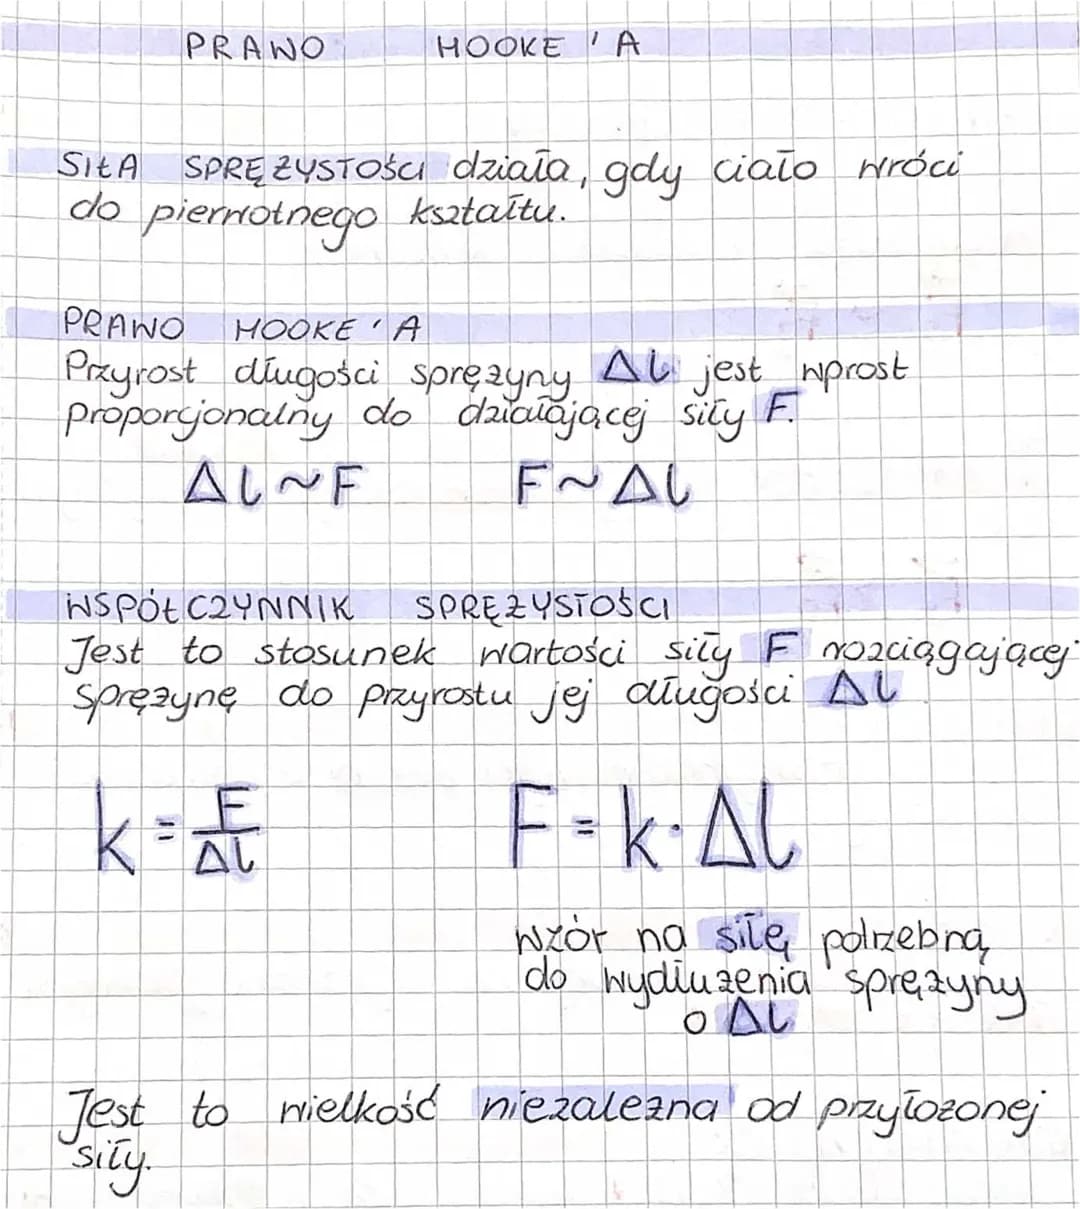 PRAWO HOOKE'A
SIŁA SPRĘŻYSTOŚCI działa, gdy ciało wróci
do pierwotnego kształtu.
PRAWO HOOKE'A
Przyrost długości sprężyny Δl jest wprost
proporcjonalny do działającej siły F.
Δl~F F~Δl
WSPÓŁCZYNNIK SPRĘŻYSTOŚCI
Jest to stosunek wartości siły F rozciągającej
sprężynę do przyrostu jej długości Δl
k = F/Δl F = k·Δl
wzór na siłę potrzebną
do wydłużenia sprężyny
o Δl
Jest to wielkość niezależna od przyłożonej
siły.